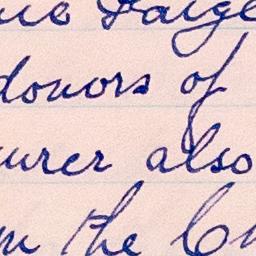 Paige
donors of
urer also
m the